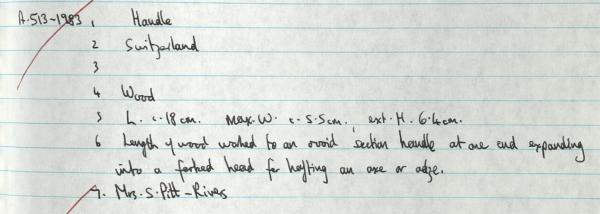 A.513-1983 1 Handle
2 Switzerland
3
4 Wood
5 L. c.18cm. Max.W. c.5.5cm. ext.H. 6.4cm.
6 Length of wood worked to an ovoid section handle at one end expanding
into a forked head for hafting an axe or adze.
7. Mrs. S. Pitt-Rivers